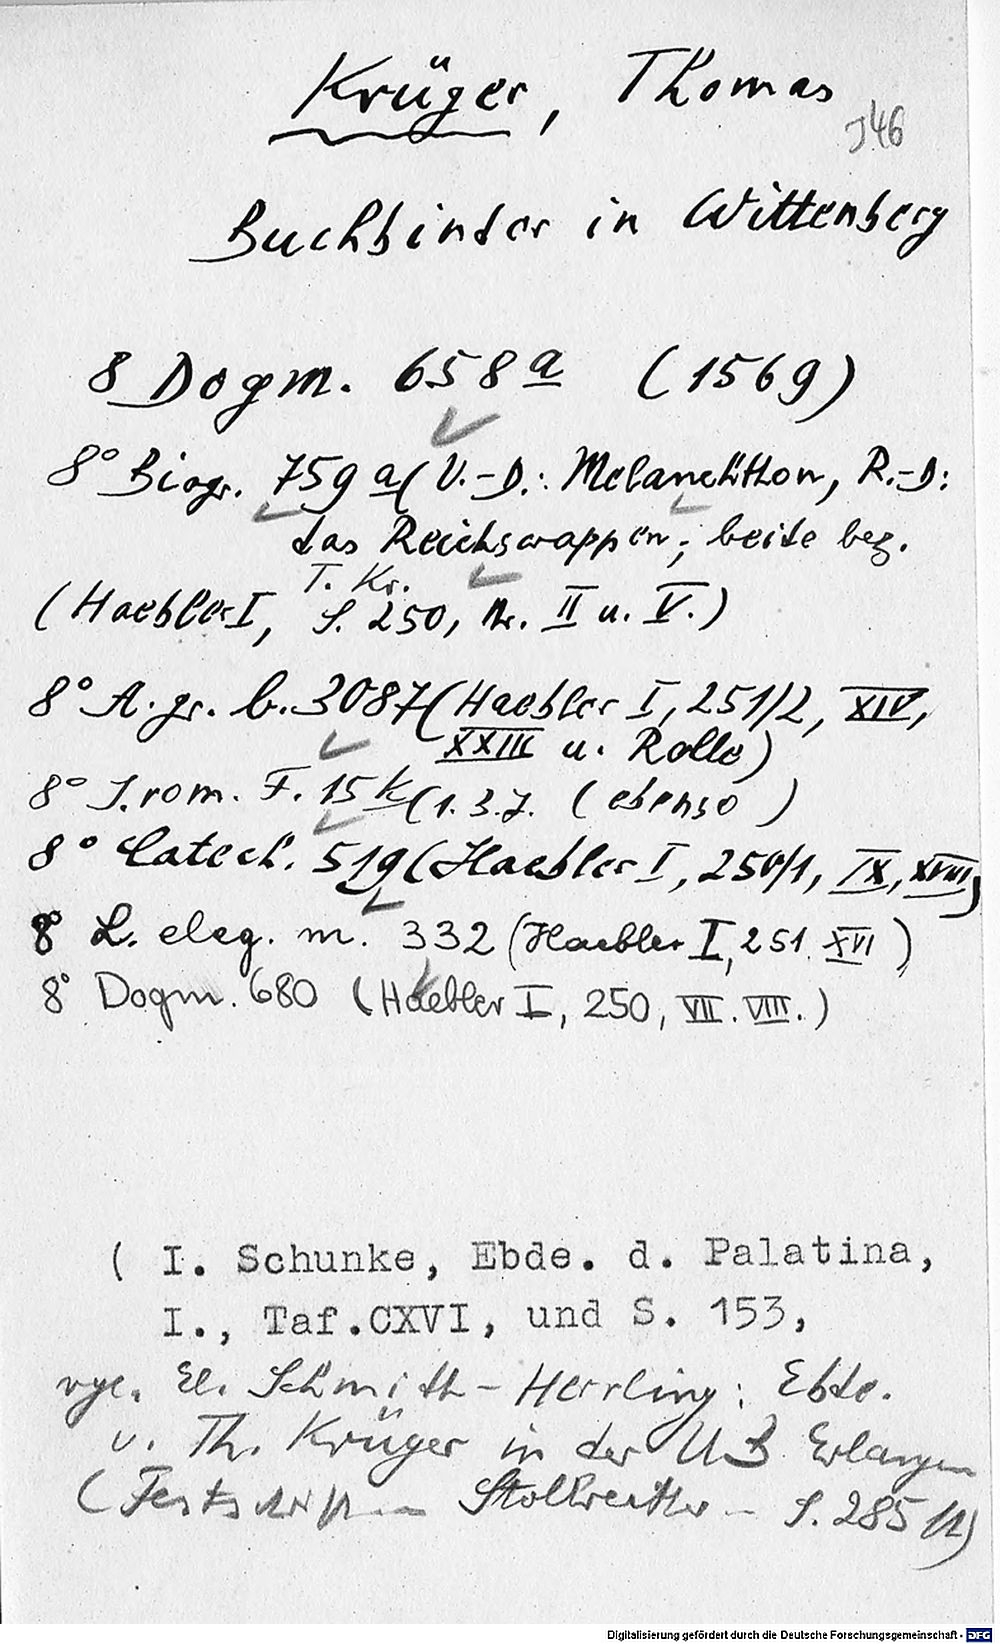 Krüger, Thomas
J46
Buchbinder in Wittenberg
8 Dogm. 658 a (1569)
8° Biogr. 759 a ( V.-D.: Melanchthon, R.-D:
das Reichswappen; beide bez.
T. Kr.
(Haebler I, S. 250, Nr. II u. V.)
8° A. gr. b. 3087 (Haebler I, 251/2, XIV,
XXIII u. Rolle)
8° J. rom. F. 15 k (1. 3. J. (ebenso)
8° Catech. 519 (Haebler I, 250/1, IX, XVIII)
8° L. eleg. m. 332 (Haebler I, 251. XVI)
8° Dogm. 680 (Haebler I, 250, VII. VIII.)
( I. Schunke, Ebde. d. Palatina,
I., Taf.CXVI, und S. 153,
vgl. El. Schmidt-Herrling: Ebde.
v. Th. Krüger in der UB Erlangen
(Festschrift Stollreither - S. 285 ff)
Digitalisierung gefördert durch die Deutsche Forschungsgemeinschaft - DFG